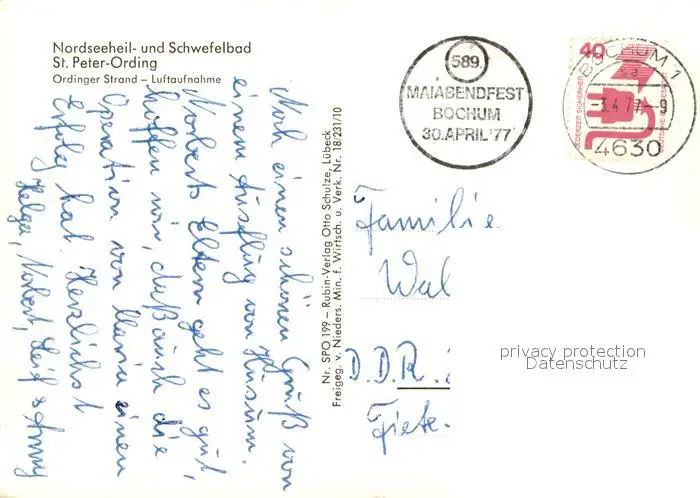 Nordseeheil- und Schwefelbad
St. Peter-Ording
Ordinger Strand – Luftaufnahme
Noch einen schönen Gruß von
einem Ausflug von Husum.
Norberts Eltern geht es gut,
hoffen wir, daß auch die
Operation von Maria einen
Erfolg hat. Herzlichst
Helga, Norbert, Leif &
Nr. SPO 199 – Rubin-Verlag Otto Schulze, Lübeck
Freigeg. v. Nieders. Min. f. Wirtsch. u. Verk. Nr. 18/231/10
589.
MAIABENDFEST
BOCHUM
30.APRIL'77
40
JEDERZEIT SICHERHEIT
DEUTSCHE BUNDESPOST
BOCHUM 1
sa
-3.4.77.-9
4630
Familie
Wal
D.D.R.
privacy protection
Datenschutz